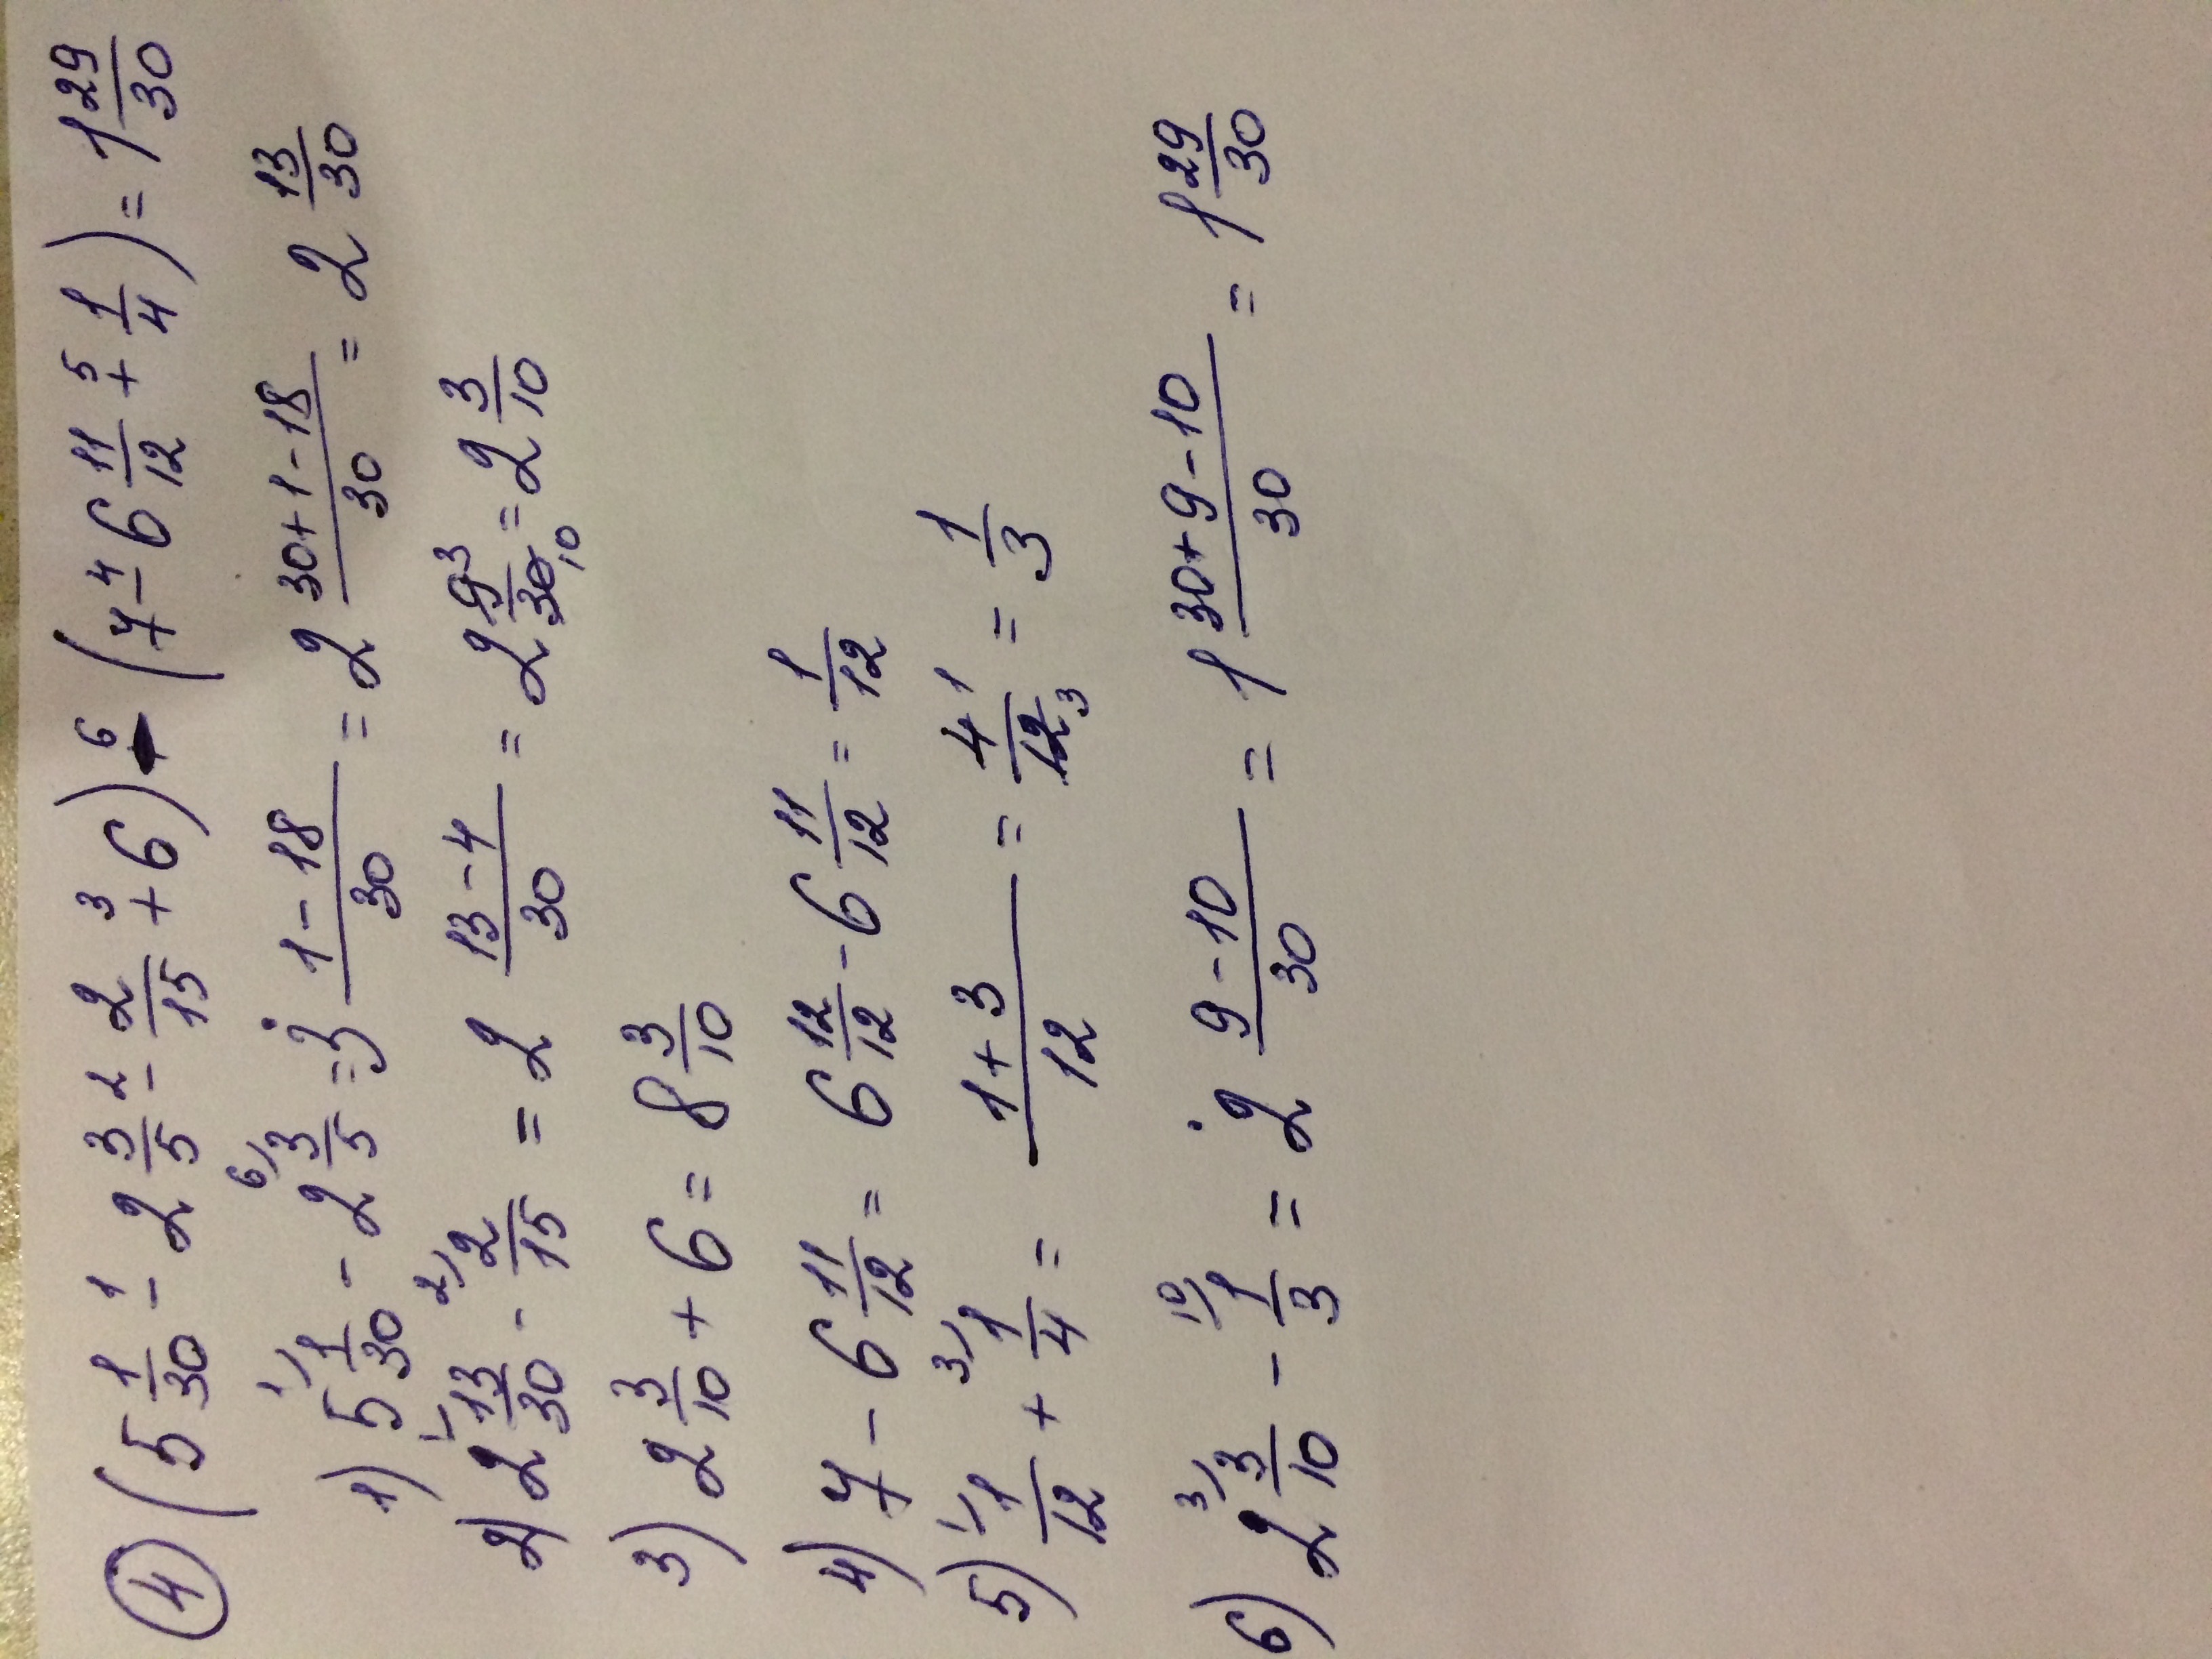 ④ (5 1/30 -¹ 2 3/5 -² 2/15 +³ 6) -⁶ (7 -⁴ 6 11/12 +⁵ 1/4) = 1 29/30
1) 5 ¹⁾1/30 - 2 ⁶⁾3/5 = 3 (1-18)/30 = 2 (30+1-18)/30 = 2 13/30
2) 2 ¹⁾13/30 - ²⁾2/15 = 2 (13-4)/30 = 2 9³/30₁₀ = 2 3/10
3) 2 3/10 + 6 = 8 3/10
4) 7 - 6 11/12 = 6 12/12 - 6 11/12 = 1/12
5) ¹⁾1/12 + ³⁾1/4 = (1+3)/12 = 4¹/12₃ = 1/3
6) 2 ³⁾3/10 - ¹⁰⁾1/3 = 2 (9-10)/30 = 1 (30+9-10)/30 = 1 29/30